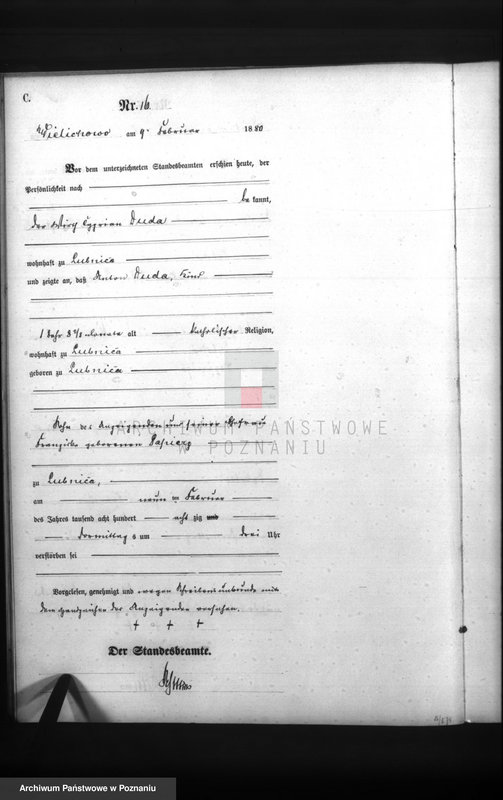 C.
Nr. 16.
Wielichowo am 9. Februar 1880
Vor dem unterzeichneten Standesbeamten erschien heute, der
Persönlichkeit nach
be kannt,
der Wirth Cyprian Duda
wohnhaft zu Lubnica
und zeigte an, daß Anton Duda, Kind
1 Jahr 8 1/2 Monate alt katholischer Religion,
wohnhaft zu Lubnica
geboren zu Lubnica
ARCHIWUM PAŃSTWOWE
W POZNANIU
Sohn des Anzeigenden und seiner Ehefrau
Franziska geborenen Papierz
zu Lubnica,
am neun ten Februar
des Jahres tausend acht hundert acht zig und
Vormittag s um drei Uhr
verstorben sei
Vorgelesen, genehmigt und wegen Schreibensunkunde mit
dem Handzeichen des Anzeigenden versehen.
+ + +
Der Standesbeamte.
Archiwum Państwowe w Poznaniu